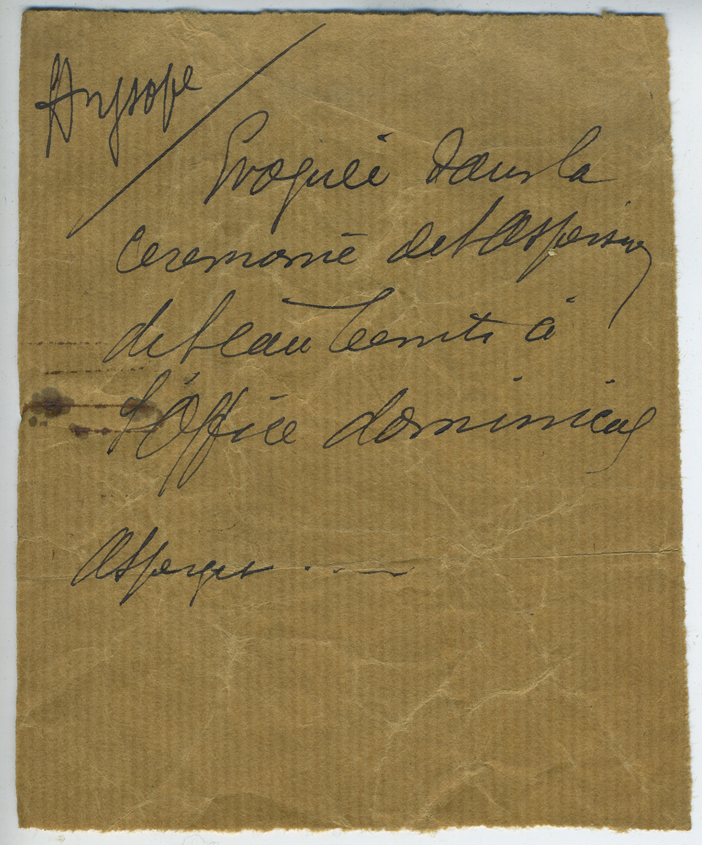 Hysope
Evoquée dans la
ceremonie de l'Aspersion
de l'eau benite à
l'Office dominical
Asperges . . . —